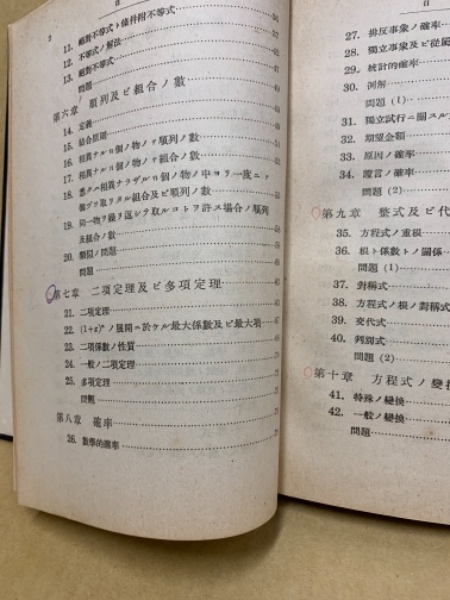 2
目
11. 絶對不等式ト條件附不等式
12. 不等式ノ解法
13. 絶對不等式
問題
第六章 順列及ビ組合ノ數
14. 定義
15. 結合原則
16. 相異ナルn個ノ物ノr順列ノ數
17. 相異ナルn個ノ物ノr組合ノ數
18. 悉クハ相異ナラザルn個ノ物ノ中ヨリ一度ニr
個ヅツ取リタル組合及ビ順列ノ數
19. 同一物ヲ繰リ返シテ取ルコトヲ許ス場合ノ順列
及組合ノ數
20. 類似ノ問題
問題
第七章 二項定理及ビ多項定理
21. 二項定理
22. ノ展開ニ於ケル最大係數及ビ最大項
23. 二項係數ノ性質
24. 一般ノ二項定理
25. 多項定理
問題
第八章 確率
26. 數學的確率
目
27. 排反事象ノ確率
28. 獨立事象及ビ從屬
29. 統計的確率
30. 例解
問題 (1)
31. 獨立試行ニ關スル
32. 期望金額
33. 原因ノ確率
34. 證言ノ確率
問題 (2)
第九章 整式及ビ代
35. 方程式ノ重根
36. 根ト係數トノ關係
問題 (1)
37. 對稱式
38. 方程式ノ根ノ對稱式
39. 交代式
40. 判別式
問題 (2)
第十章 方程式ノ變換
41. 特殊ノ變換
42. 一般ノ變換
問題